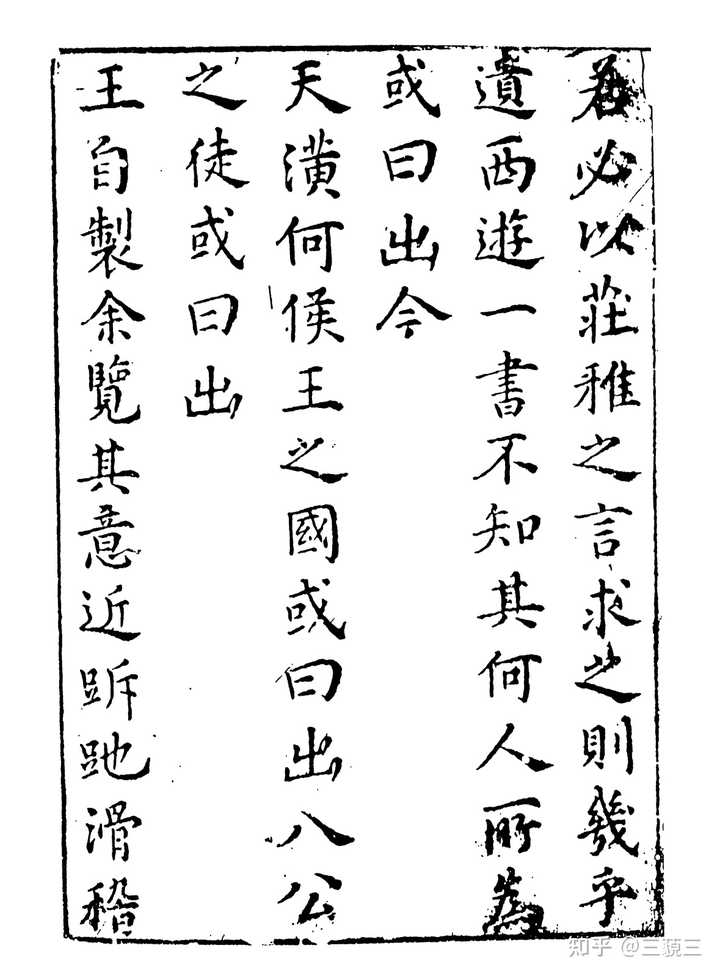 若必以莊雅之言求之則幾乎
遺西遊一書不知其何人所為
或曰出今
天潢何侯王之國或曰出八公
之徒或曰出
王自製余覽其意近跅滑稽
知乎 @三藐三